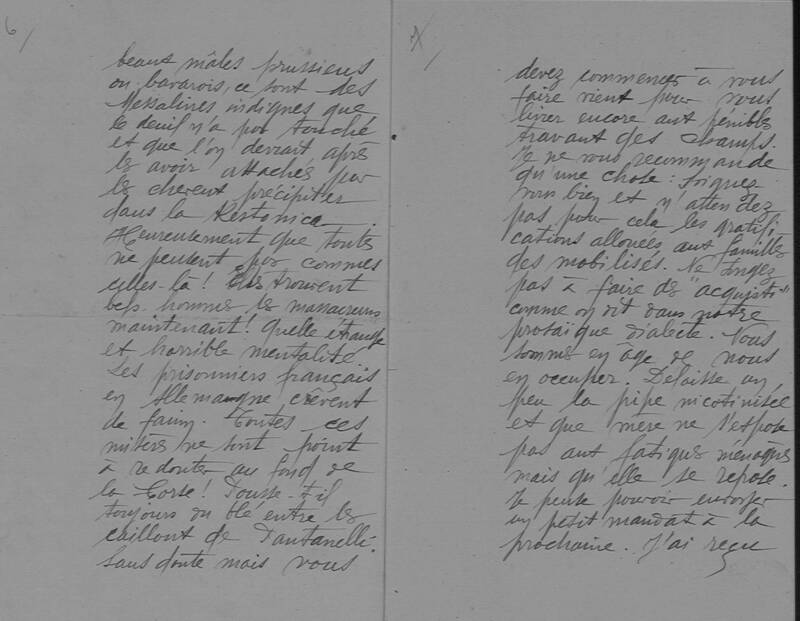 6/
beaux mâles prussiens
ou bavarois, ce sont des
Messalines indignes que
le deuil n'a pas touché
et que l'on devrait après
les avoir attachés par
les cheveux précipiter
dans la Restonica.
Heureusement que toutes
ne pensent pas comme
celles-là! Elles trouvent
beaux hommes les massacreurs
maintenant! Quelle étrange
et horrible mentalité
Les prisonniers français
en Allemagne crèvent
de faim. Toutes ces
misères ne sont point
à redouter au fond de
la Corse! Pousse-t-il
toujours du blé entre les
cailloux de
Sans doute mais vous
7/
devez commencer à vous
faire vieux pour vous
livrer encore aux pénibles
travaux des champs.
Je ne vous recommande
qu'une chose: soignez
vous bien et n'attendez
pas pour cela les gratifi
cations allouées aux familles
des mobilisés. Ne songez
pas à faire des "acquisti"
comme on dit dans notre
prosaïque dialecte. Nous
sommes en âge de nous
en occuper. Délaisse un
peu la pipe nicotinisée
et que mère ne s'expose
pas aux fatigues ménagères
mais qu'elle se repose.
Je pense pouvoir envoyer
un petit mandat à la
prochaine. J'ai reçu